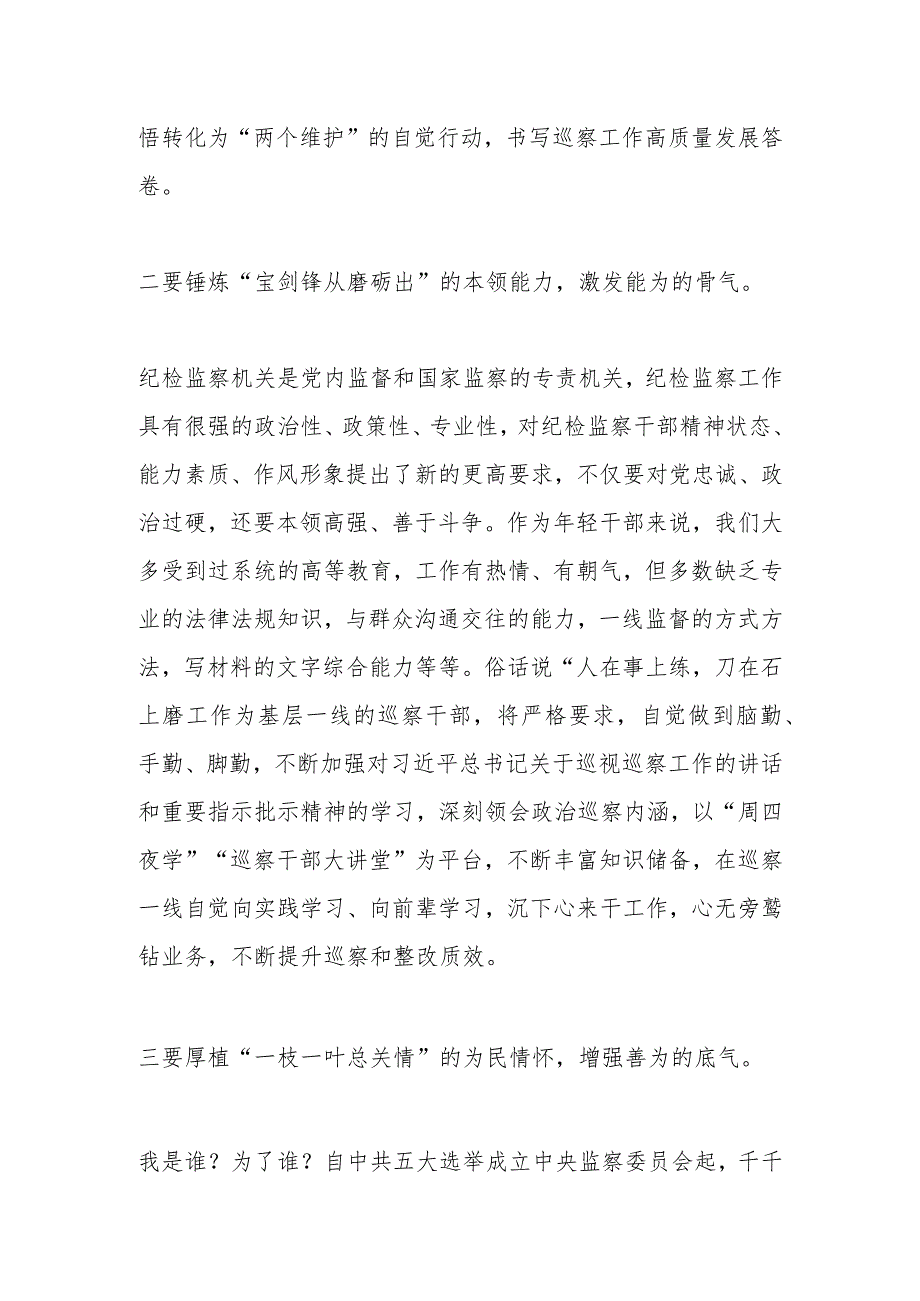 悟转化为“两个维护”的自觉行动，书写巡察工作高质量发展答
卷。
二要锤炼“宝剑锋从磨砺出”的本领能力，激发能为的骨气。
纪检监察机关是党内监督和国家监察的专责机关，纪检监察工作
具有很强的政治性、政策性、专业性，对纪检监察干部精神状态、
能力素质、作风形象提出了新的更高要求，不仅要对党忠诚、政
治过硬，还要本领高强、善于斗争。作为年轻干部来说，我们大
多受到过系统的高等教育，工作有热情、有朝气，但多数缺乏专
业的法律法规知识，与群众沟通交往的能力，一线监督的方式方
法，写材料的文字综合能力等等。俗话说“人在事上练，刀在石
上磨工作为基层一线的巡察干部，将严格要求，自觉做到脑勤、
手勤、脚勤，不断加强对习近平总书记关于巡视巡察工作的讲话
和重要指示批示精神的学习，深刻领会政治巡察内涵，以“周四
夜学”“巡察干部大讲堂”为平台，不断丰富知识储备，在巡察
一线自觉向实践学习、向前辈学习，沉下心来干工作，心无旁鹜
钻业务，不断提升巡察和整改质效。
三要厚植“一枝一叶总关情”的为民情怀，增强善为的底气。
我是谁？为了谁？自中共五大选举成立中央监察委员会起，千千